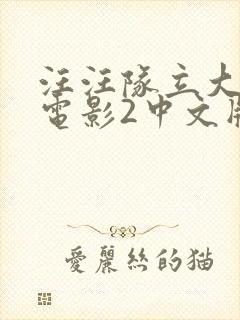 汪汪隊立大
電影2中文
愛麗絲的猫